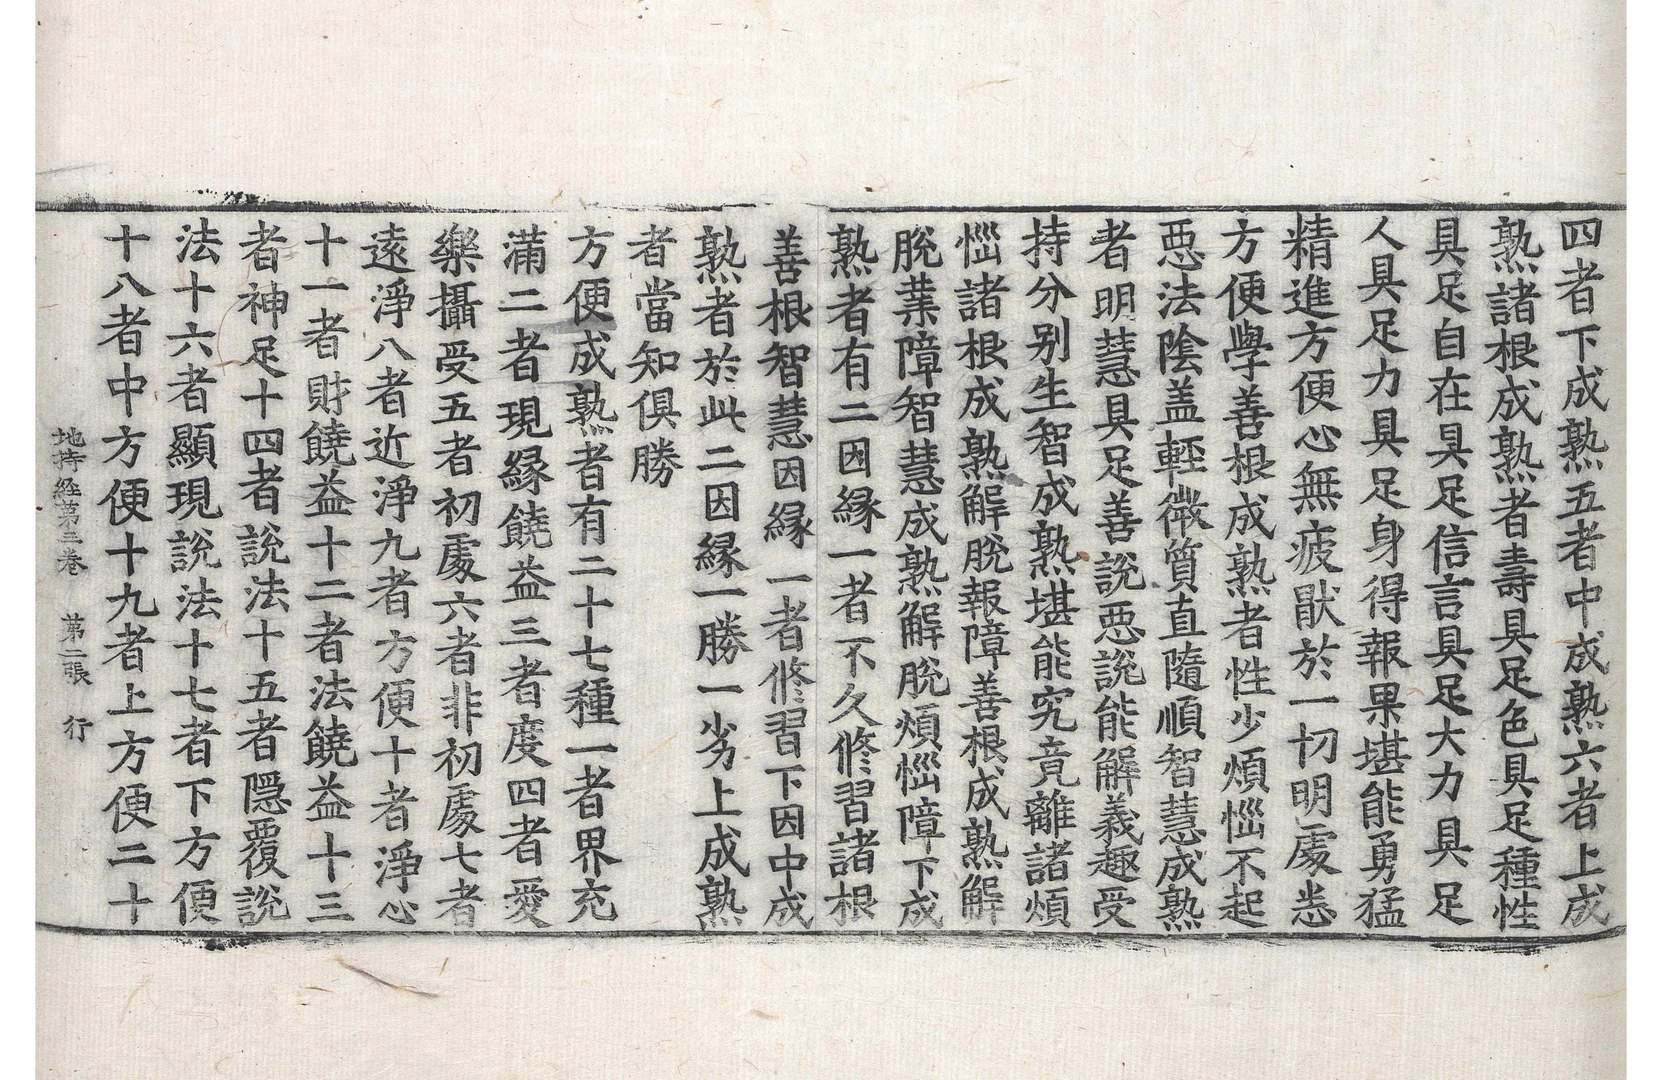 四者下成熟五者中成熟六者上成
熟諸根成熟者壽具足色具足種性
具足自在具足信言具足大力具足
人具足力具足身得報果堪能勇猛
精進方便心無疲猒於一切明處悉
方便學善根成熟者性少煩惱不起
惡法陰盖輕微質直隨順智慧成熟
者明慧具足善說惡說能解義趣受
持分別生智成熟堪能究竟離諸煩
惱諸根成熟解脫報障善根成熟解
脫業障智慧成熟解脫煩惱障下成
熟者有二因緣一者不久修習諸根
善根智慧因緣一者修習下因中成
熟者於此二因緣一勝一劣上成熟
者當知俱勝
方便成熟者有二十七種一者界充
滿二者現緣饒益三者度四者愛
樂攝受五者初處六者非初處七者
遠淨八者近淨九者方便十者淨心
十一者財饒益十二者法饒益十三
者神足十四者說法十五者隱覆說
法十六者顯現說法十七者下方便
十八者中方便十九者上方便二十
地持経苐三卷 苐二張 行